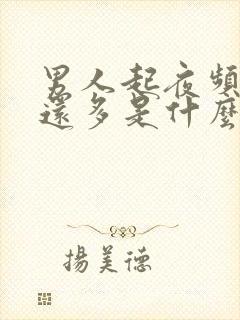 男人起夜頻
還多是什麼
揚美德